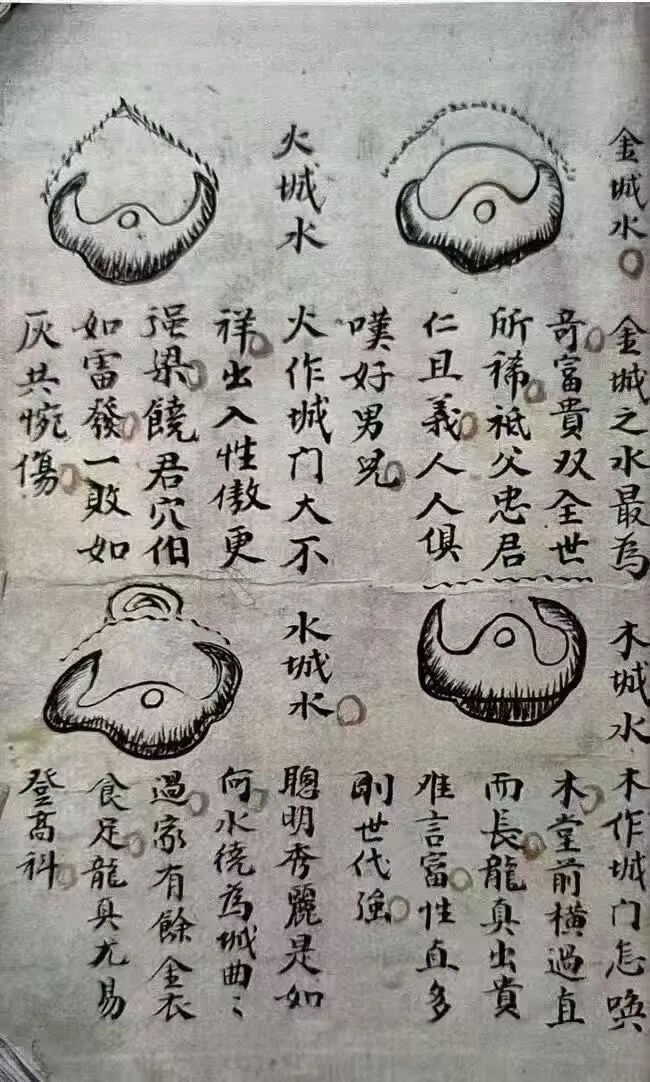 金城水
金城之水最為
奇富貴双全世
所稀祗父忠君
仁且義人人俱
嘆好男児
火城水
火作城门大不
祥出入性傲更
强梁饒君穴伯
如雷發一敗如
灰共惋傷
木城水
木作城门怎喚
木堂前橫過直
而長龍真出貴
难言富性直多
剛世代強
水城水
聰明秀麗是如
何水繞為城曲〻
過家有餘金衣
食足龍真尤易
登高科